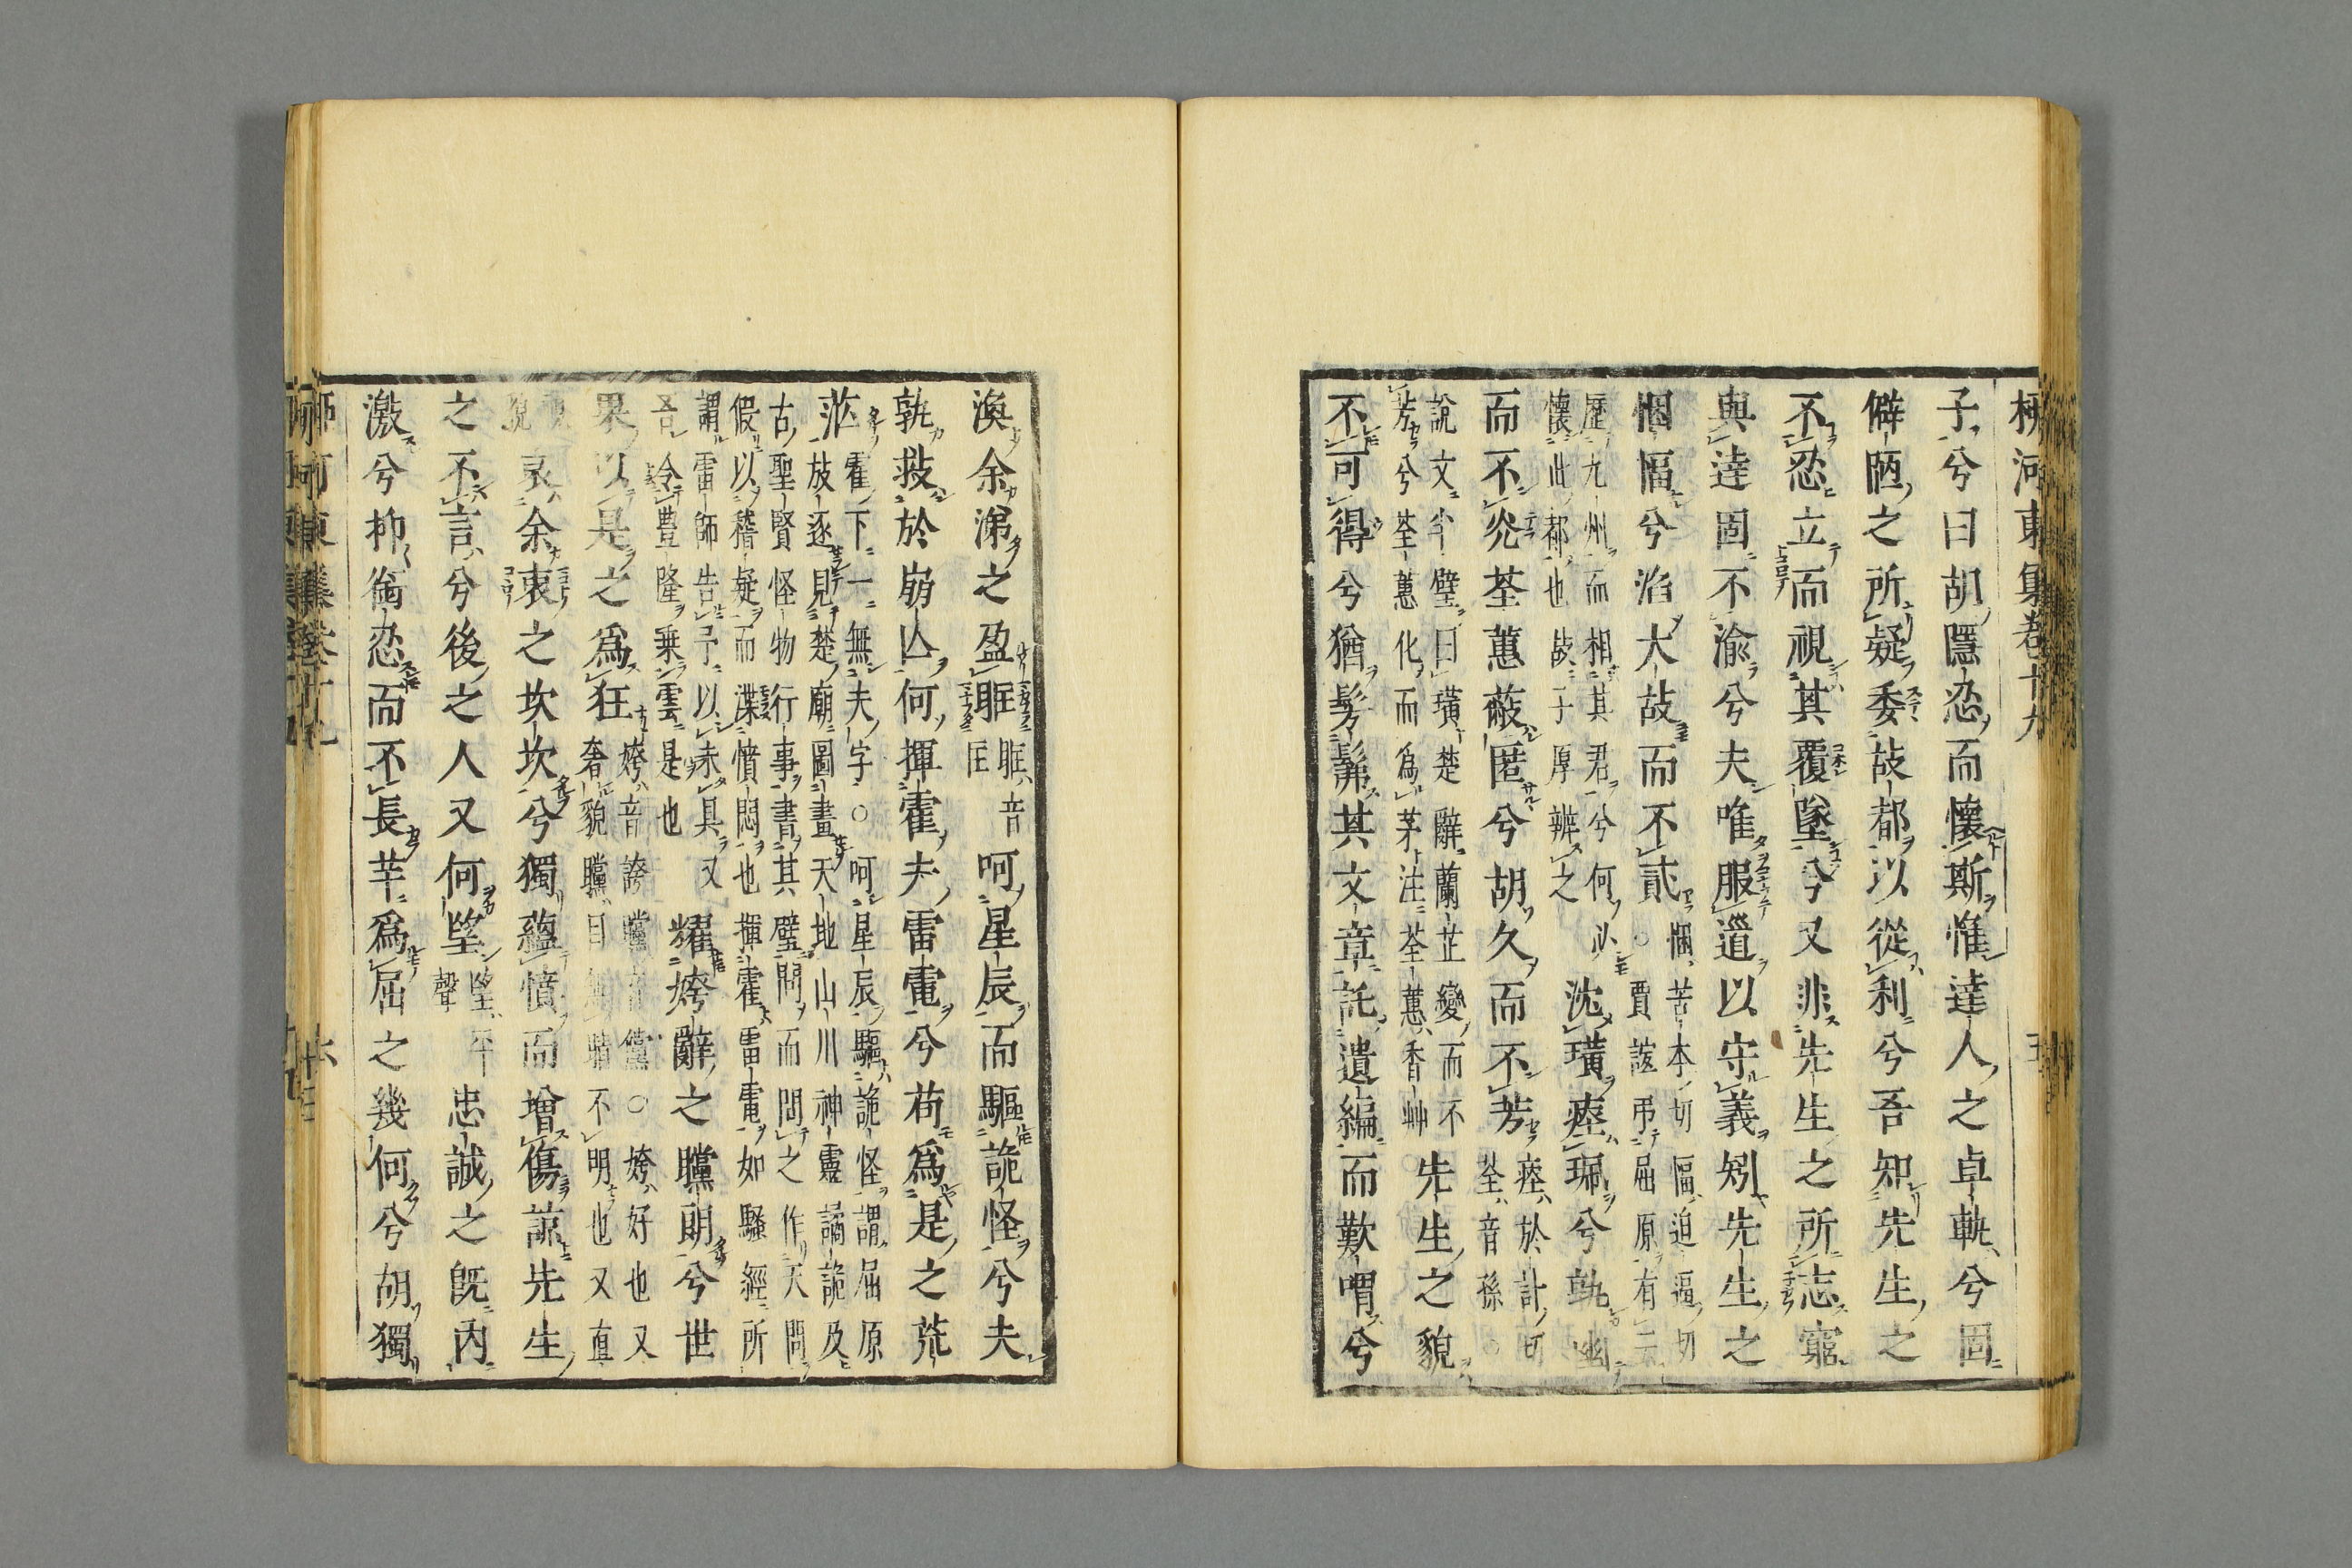 柳河東集卷十九
子兮曰胡隱忍而懷斯惟達人之卓軌兮固
僻陋之所疑委故都以從利兮吾知先生之
不忍立而視其覆墜兮又非先生之所志窮
與達固不渝兮夫唯服道以守義矧先生之
悃愊兮滔大故而不貳悃苦本切愊迫逼切
○賈誼弔屈原有云
歷九州而相其君兮何必
懷此都也故子厚辨之
沈璜瘞珮兮孰幽
而不光荃蕙蔽匿兮胡久而不芳瘞於計切
荃音孫○
說文半璧曰璜楚辭蘭芷變而不
芳兮荃蕙化而爲茅注荃蕙香艸
先生之貌
不可得兮猶髣髴其文章託遺編而歎喟兮
渙余涕之盈眶眶音
匡
呵星辰而驅詭怪兮夫
孰救於崩亾何揮霍夫雷電兮苟爲是之荒
茫霍下一無夫字○呵星辰驅詭怪謂屈原
放逐見楚廟圖畫天地山川神靈譎詭及
古聖賢怪物行事書其璧問而問之作天問
假以稽疑而渫憤悶也揮霍雷電如騷經所
謂雷師告予以未具又
吾令豊隆乗雲是也
耀姱辭之矘朗兮世
果以是之爲狂姱音誇矘音儻○姱好也又
奢貌矘目無睛不明也又直
視
貌
哀余衷之坎坎兮獨蘊憤而增傷諒先生
之不言兮後之人又何望望平
聲
忠誠之旣內
激兮抑銜忍而不長芈爲屈之幾何兮胡獨